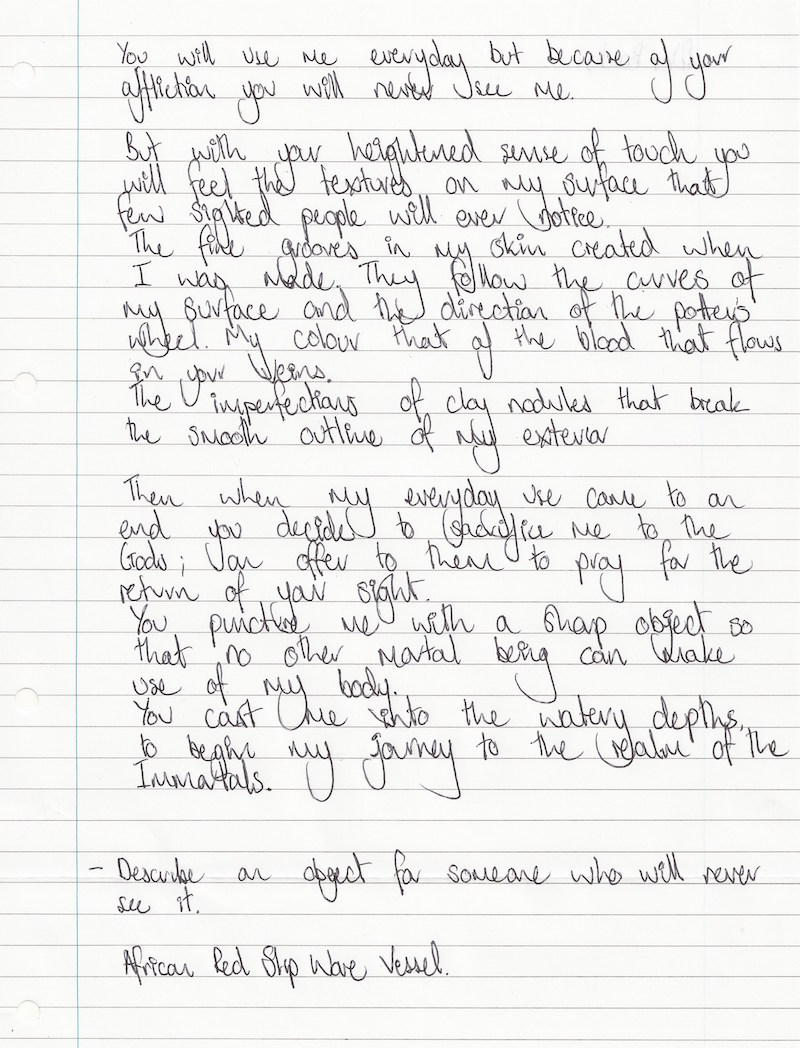 You will use me everyday but because of your
affliction you will never see me.
But with your heightened sense of touch you
will feel the textures on my surface that
few sighted people will ever notice.
The fine grooves in my skin created when
I was made. They follow the curves of
my surface and the direction of the potter's
wheel. My colour that of the blood that flows
in your veins.
The imperfections of clay nodules that break
the smooth outline of my exterior
Then when my everyday use came to an
end you decide to sacrifice me to the
Gods; an offer to them to pray for the
return of your sight.
You puncture me with a sharp object so
that no other mortal being can make
use of my body.
You cast me into the watery depths,
to begin my journey to the realm of the
Immortals.
- Describe an object for someone who will never
see it.
African Red Slip Ware Vessel.